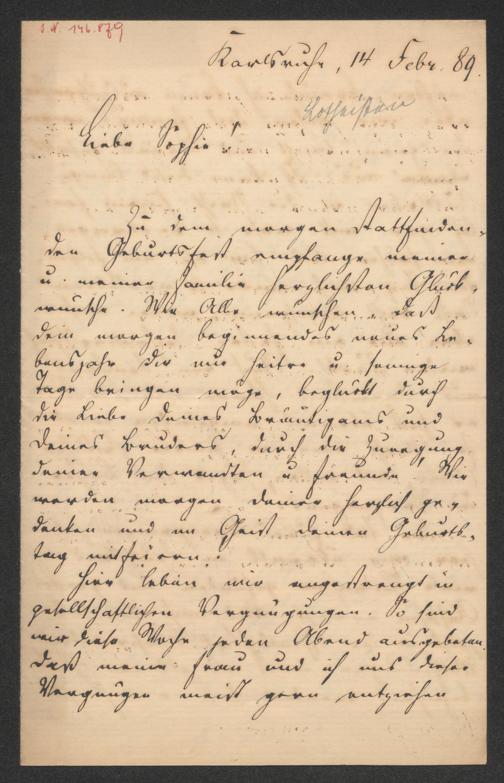 J. N. 146.879
Karlsruhe, 14 Febr. 89.
Liebe Sophie!
Zu dem morgen stattfinden-
den Geburtsfest empfange meine
u. meiner Familie herzlichsten Glück-
wünsche. Wir Alle wünschen, daß
dein morgen beginnendes neues Le-
bensjahr dir nur heitre u. sonnige
Tage bringen möge, beglückt durch
die Liebe deines Bräutigams und
deines Bruders, durch die Zuneigung
deiner Verwandten u. Freunde. Wir
werden morgen deiner herzlich ge-
denken und im Geist deinen Geburts-
tag mitfeiern.
Hier leben wir angestrengt in
gesellschaftlichen Vergnügungen. So sind
wir diese Woche jeden Abend ausgebeten.
Daß meine Frau und ich uns dieser
Vergnügen meist gern entziehen